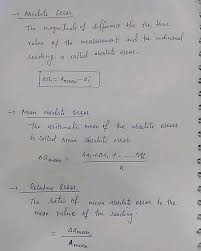 → Absolute Error
The magnitude of difference b/w the true
value of the measurement and the individual
reading is called absolute error.
Δai = amean - ai
→ Mean absolute Error
The arithmetic mean of the absolute errors
is called mean absolute error.
Δamean =
n
→ Relative Error
The ratio of mean absolute error to the
mean value of the reading.
= Δamean
amean